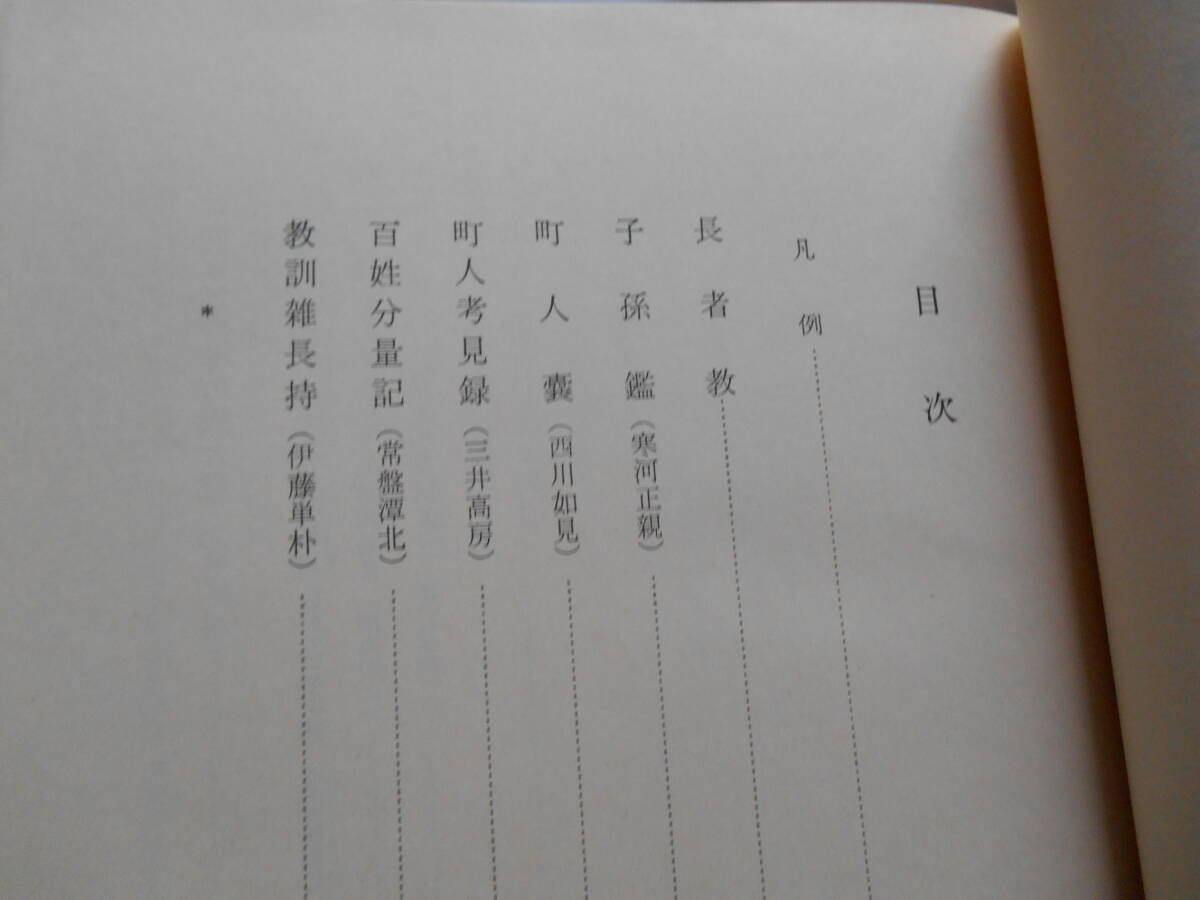 目次
凡例
長者教
子孫鑑（寒河正親）
町人嚢（西川如見）
町人考見録（三井高房）
百姓分量記（常盤潭北）
教訓雑長持（伊藤単朴）
*